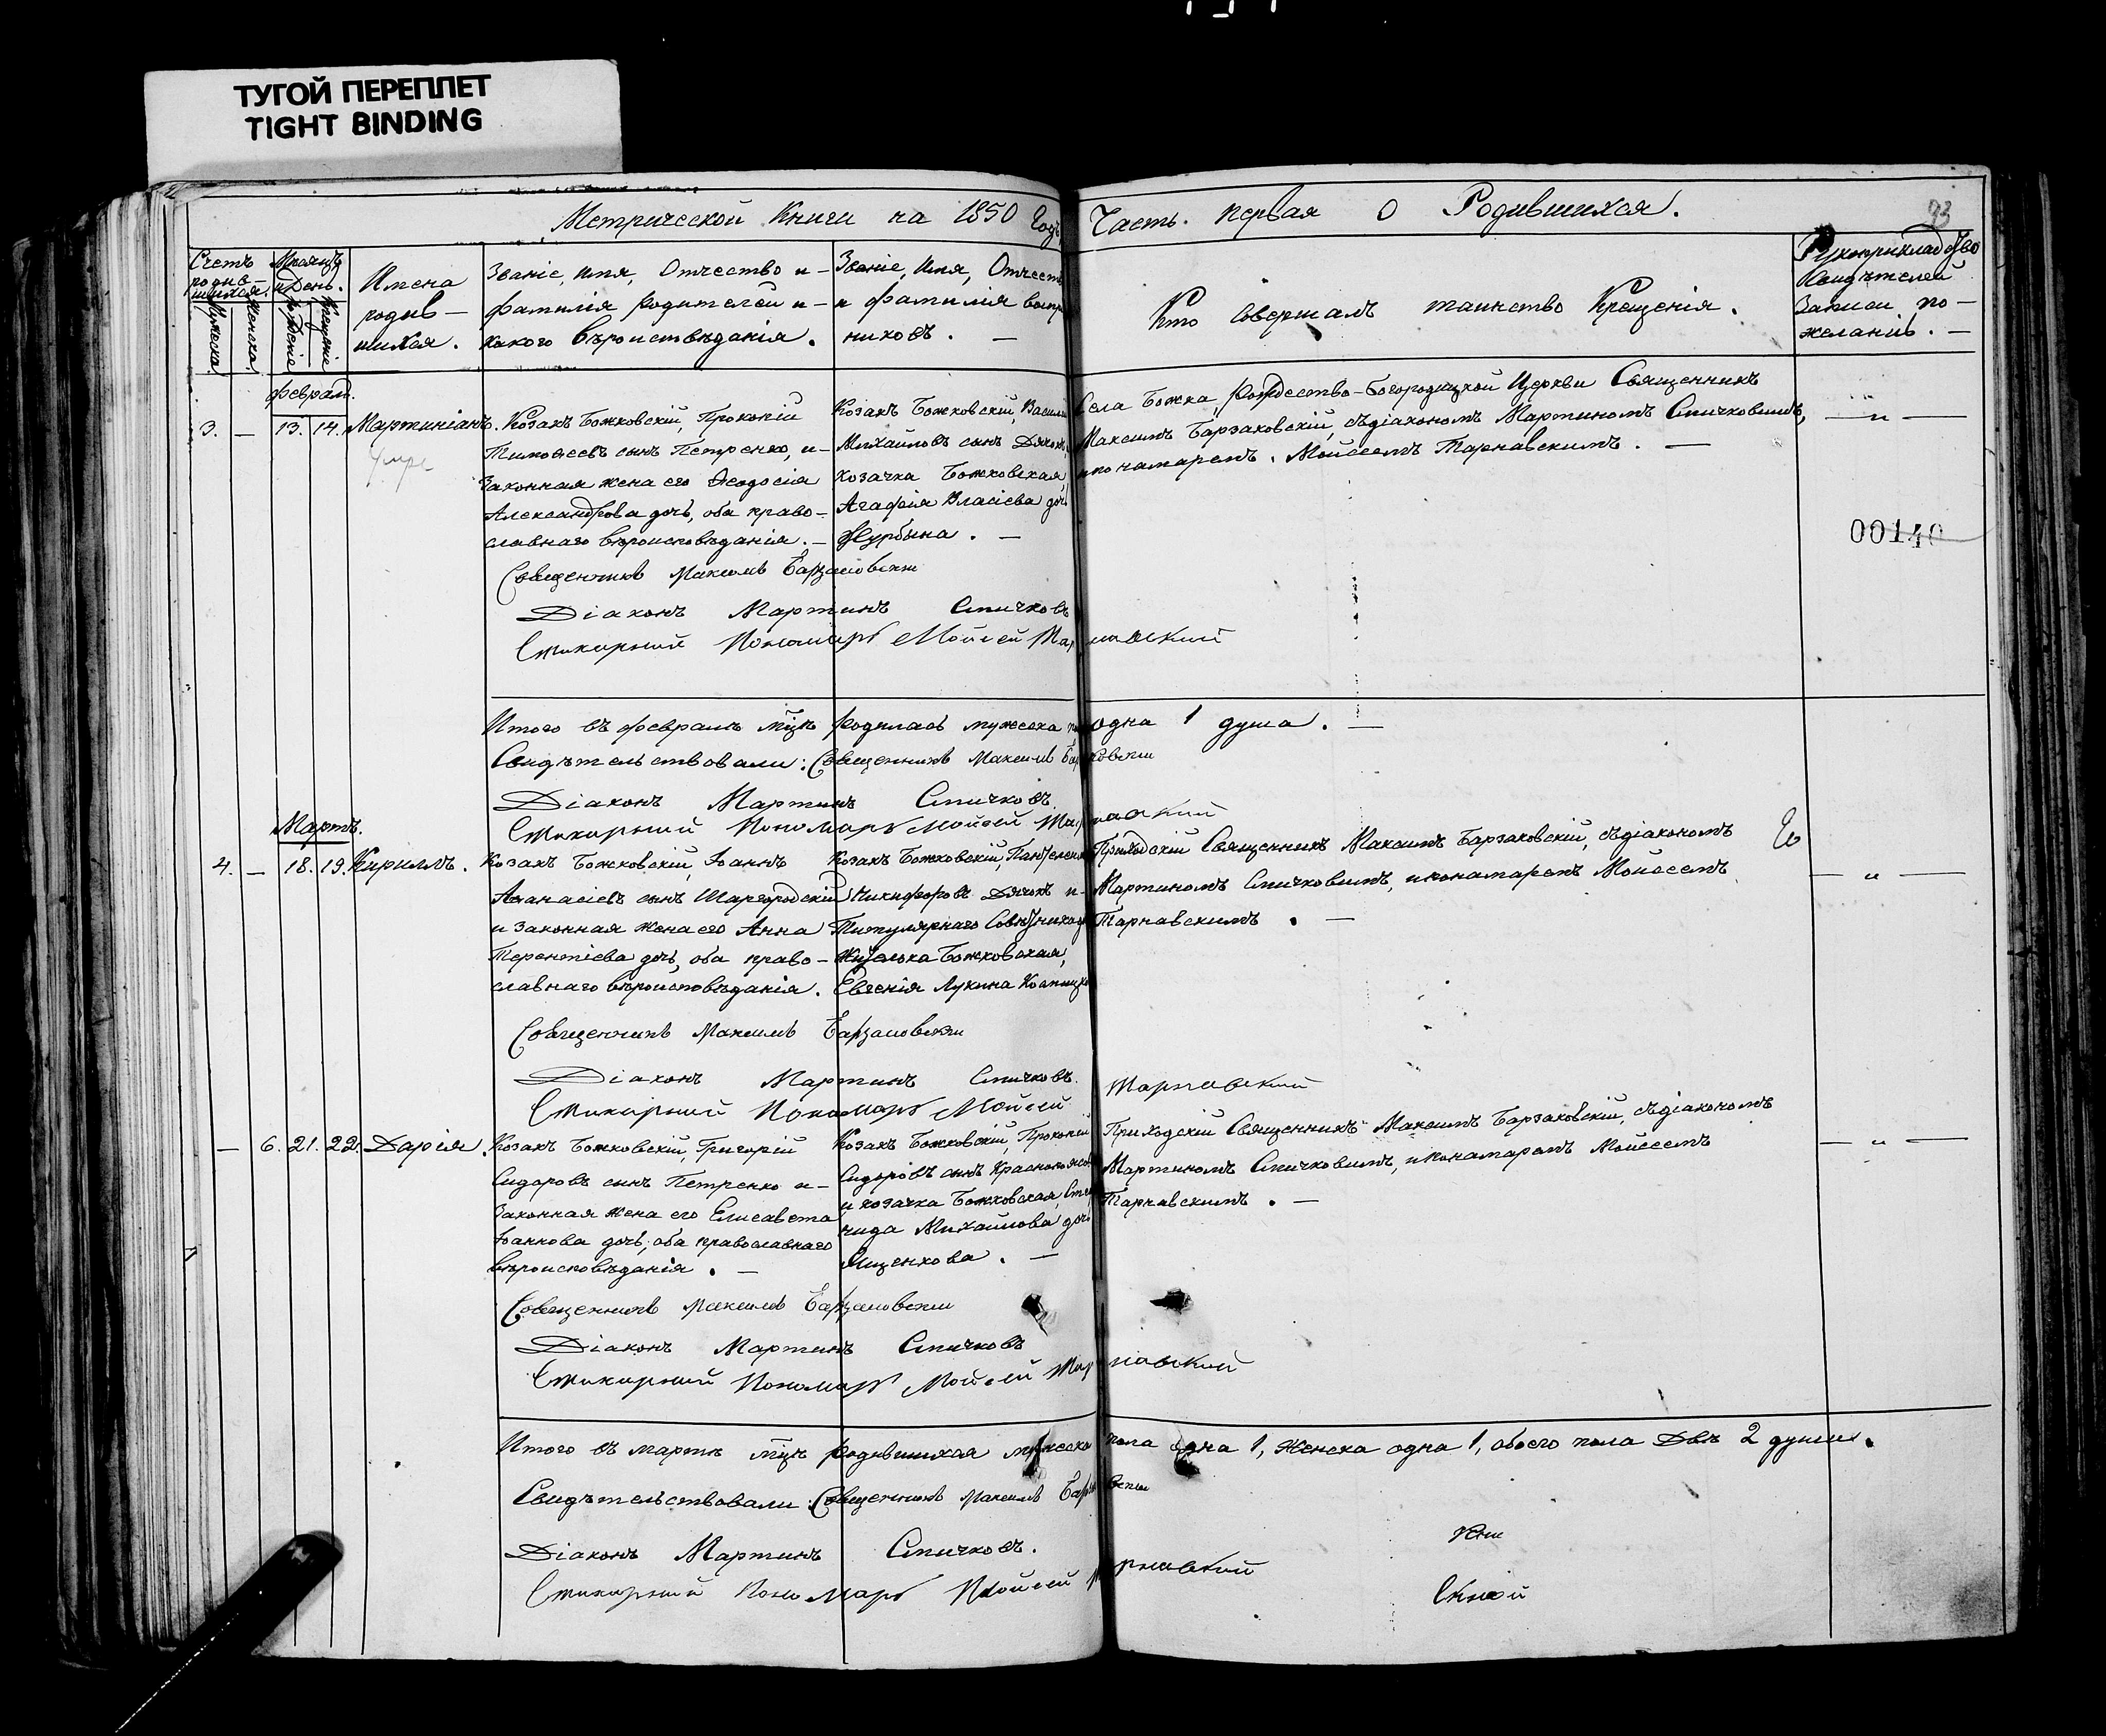 ТУГОЙ ПЕРЕПЛЕТ
TIGHT BINDING
Метрической Книги на 1850 Годъ
Часть первая о Родившихся.
93
Счетъ родив-шихся.
Мужеска.
Женска.
Мѣсяцъ и День.
Рожденіе
Крещеніе
Имена
родив-
шихся.
Званіе, имя, Отчество и-
фамилія родителей и-
какого вѣроисвѣданія.
Званіе, Имя, Отчест
и фамилія воспр
никовъ. —
Кто совершалъ таинство Крещенія.
Рукоприкладство
свидѣтелей
Записи по-
желанію. —
феврал.
3. — 13. 14. Мартиніанъ.
умре
Козакъ Божковскій, Прокопій
Тимоѳеевъ сынъ Петренко, и-
Законная жена его Ѳеодосія
Александрова дочь, оба право-
славнаго вѣроисповѣданія. —
Козакъ Божковскій, Василій
Михайловъ сынъ
Козачка Божковская,
Агафія Власіева доч
Журбына. —
Села Божка, Рождество-Богородицкой Церкви Священникъ
Максимъ Барзаковскій, съ діакономъ Мартиномъ Спичковымъ,
и понамаремъ. Мойсеемъ Тарнавскимъ. —
— „ —
00140
Священникъ Максимъ Барзаковскій
Діаконъ Мартинъ Спичковъ
Стихарный Пономарь Мойсей Тарнавский
Итого въ февралѣ мцѣ родилась мужеска одна 1 душа. —
Свидѣтельствовали: Священникъ Максимъ
Діаконъ Мартинъ Спичковъ.
Стихарный Пономарь Мойсей Тарнавский
Мартъ.
4. — 18. 19. Кириллъ.
Козакъ Божковскій, Іоаннъ
Аѳанасіевъ сынъ Шаргородскій
и Законная жена его Анна
Терентіева дочь, оба право-
славнаго вѣроисповѣданія.
Козакъ Божковскій,
Никифоровъ Дячокъ и-
Титулярнаго Совѣтника
Жителька Божковская,
Евгенія Лукина
Приходскій Священникъ Максимъ Барзаковскій, съ діакономъ
Мартиномъ Спичковымъ, и понамаремъ Мойсеемъ
Тарнавскимъ. —
— „ —
Священникъ Максимъ Барзаковскій
Діаконъ Мартинъ Спичковъ.
Стихарный Пономарь Мойсей Тарнавский
— 6. 21. 22. Дарія.
Козакъ Божковскій, Григорій
Сидоровъ сынъ Петренко и-
Законная жена его Елисавета
Іоаннова дочь, оба православнаго
вѣроисповѣданія. —
Козакъ Божковскій, Прокопій
Сидоровъ сынъ
и козачка Божковская,
нида Михайлова доч
Ященкова. —
Приходскій Священникъ Максимъ Барзаковскій, съ діакономъ
Мартиномъ Спичковымъ, и понамаремъ Мойсеемъ
Тарнавскимъ. —
— „ —
Священникъ Максимъ Барзаковскій
Діаконъ Мартинъ Спичковъ
Стихарный Пономарь Мойсей Тарнавский
Итого въ мартѣ мцѣ родившихся мужеска пола одна 1, Женска одна 1, обоего пола Двѣ 2 души.
Свидѣтельствовали: Священникъ Максимъ
Діаконъ Мартинъ Спичковъ.
Стихарный Пономарь Мойсей Тарнавский